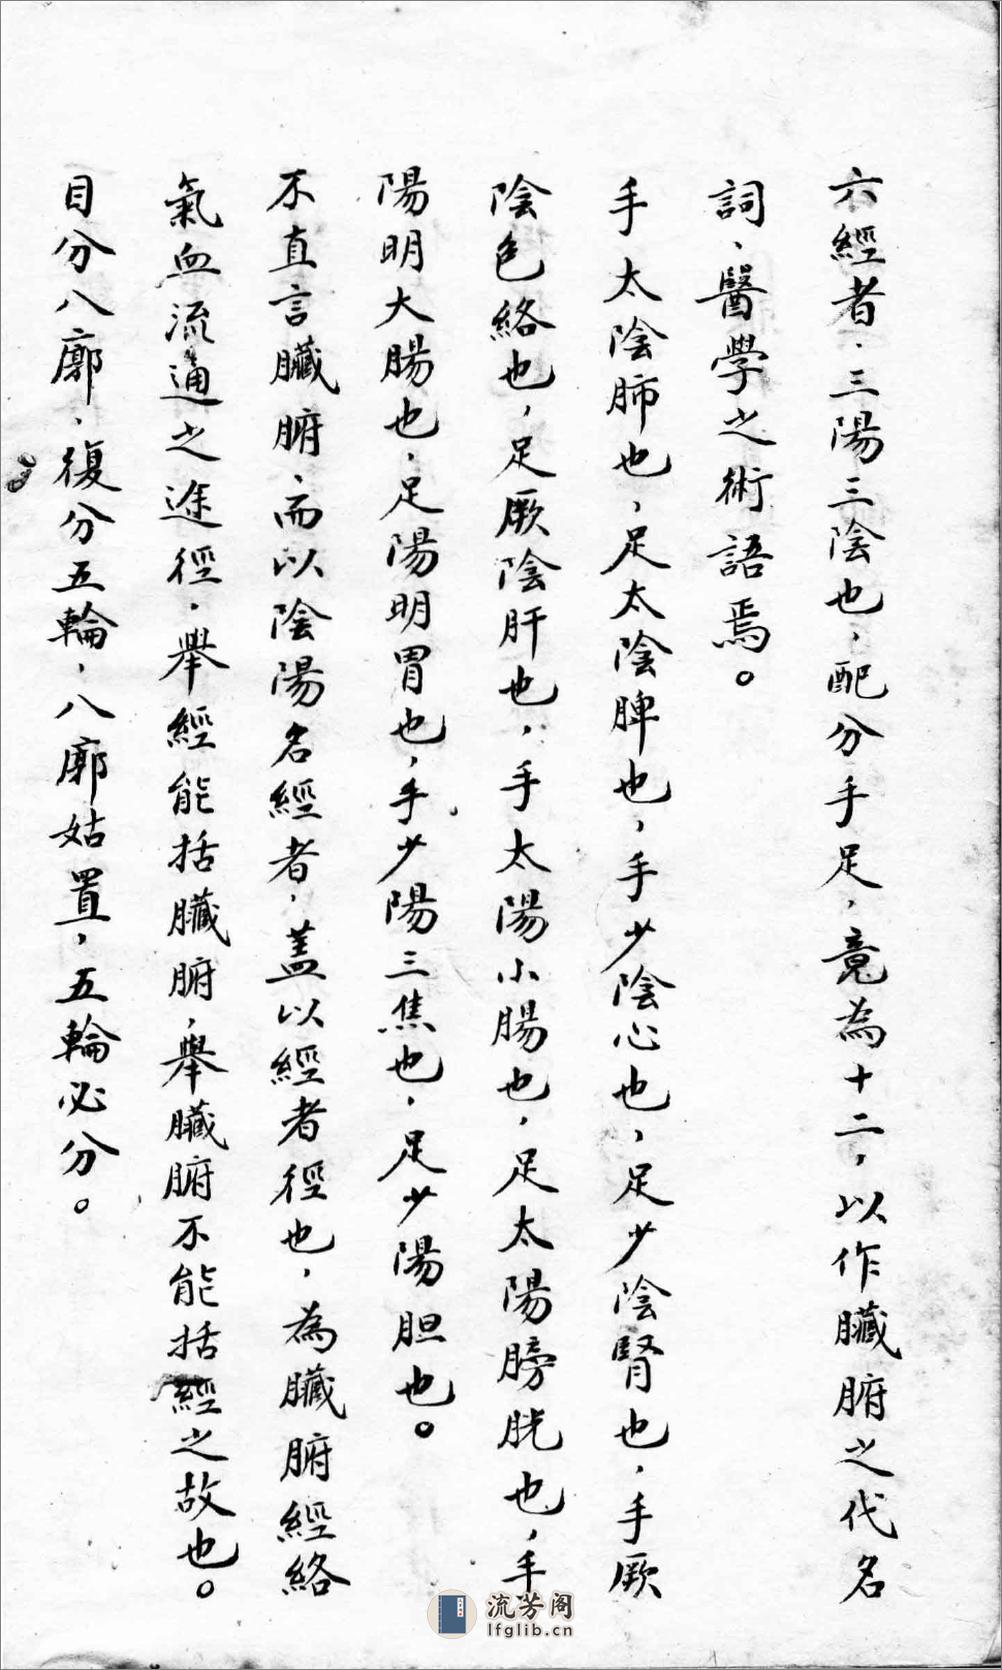 六經者、三陽三陰也，配分手足，竟為十二，以作臟腑之代名
詞、醫學之術語焉。
手太陰肺也，足太陰脾也，手少陰心也，足少陰腎也，手厥
陰色絡也，足厥陰肝也，手太陽小腸也，足太陽膀胱也，手
陽明大腸也，足陽明胃也，手少陽三焦也，足少陽胆也。
不直言臟腑，而以陰陽名經者，蓋以經者徑也，為臟腑經絡
氣血流通之途徑，舉經能括臟腑，舉臟腑不能括經之故也。
目分八廓，復分五輪，八廓姑置，五輪必分。
流芳阁
lfglib.cn